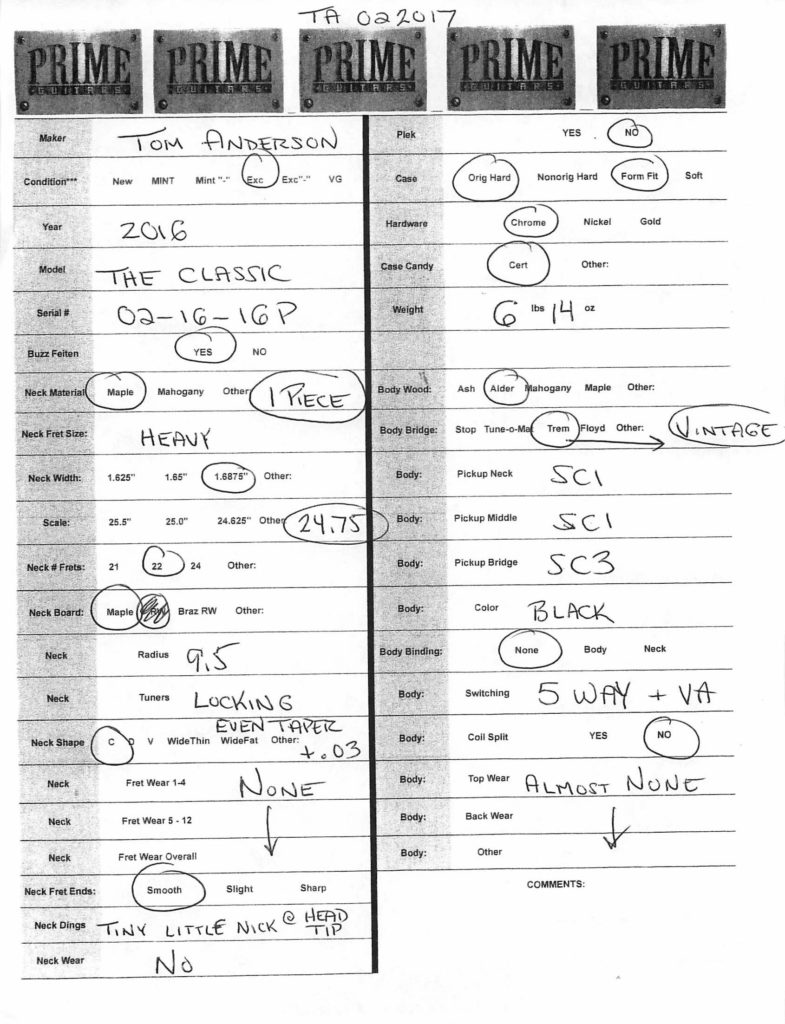 TA 022017
PRIME GUITARS PRIME GUITARS PRIME GUITARS PRIME GUITARS PRIME GUITARS
Maker TOM ANDERSON
Condition*** New MINT Mint "-" Exc Exc"-" VG
Year 2016
Model THE CLASSIC
Serial # 02-16-16P
Buzz Feiten YES NO
Neck Material Maple Mahogany Other 1 PIECE
Neck Fret Size: HEAVY
Neck Width: 1.625" 1.65" 1.6875" Other:
Scale: 25.5" 25.0" 24.625" Other 24.75
Neck # Frets: 21 22 24 Other:
Neck Board: Maple RW Braz RW Other:
Neck Radius 9.5
Neck Tuners LOCKING
Neck Shape C D V WideThin WideFat Other: EVEN TAPER +.03
Neck Fret Wear 1-4 NONE
Neck Fret Wear 5 - 12
Neck Fret Wear Overall
Neck Fret Ends: Smooth Slight Sharp
Neck Dings TINY LITTLE NICK @ HEAD TIP
Neck Wear NO
Plek YES NO
Case Orig Hard Nonorig Hard Form Fit Soft
Hardware Chrome Nickel Gold
Case Candy Cert Other:
Weight 6 lbs 14 oz
Body Wood: Ash Alder Mahogany Maple Other:
Body Bridge: Stop Tune-o-Mat Trem Floyd Other: VINTAGE
Body: Pickup Neck SC1
Body: Pickup Middle SC1
Body: Pickup Bridge SC3
Body: Color BLACK
Body Binding: None Body Neck
Body: Switching 5 WAY + VA
Body: Coil Split YES NO
Body: Top Wear ALMOST NONE
Body: Back Wear
Body: Other
COMMENTS: